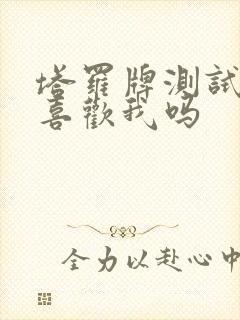 塔羅牌測試
喜歡我吗
全力以赴心中